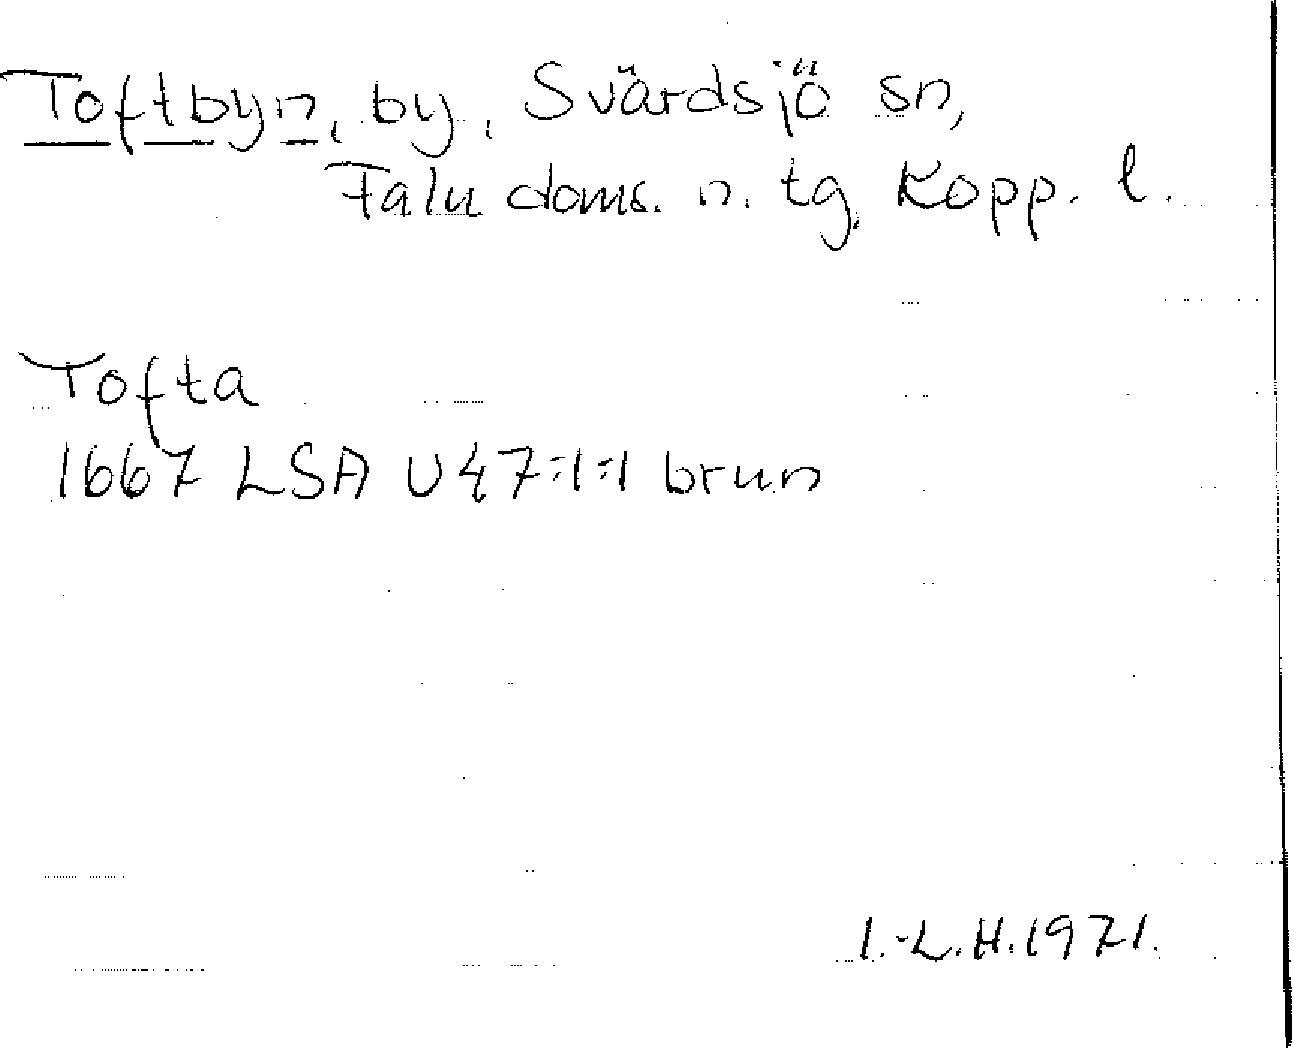 Toftbyn, by, Svärdsjö sn,
Falu doms. n. tg. Kopp. l.
Tofta
1667 LSA U47:1:1 brun
I.-L.H.1971.